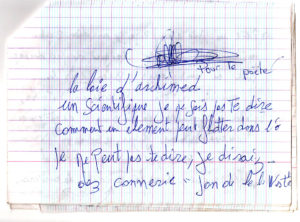 ( Pour le poche
la loie d'archimed
un scientifique je ne sais pas te dire
comment un element peut flotter dans l'o
je ne peut pas te dire, je dirais
des connerie